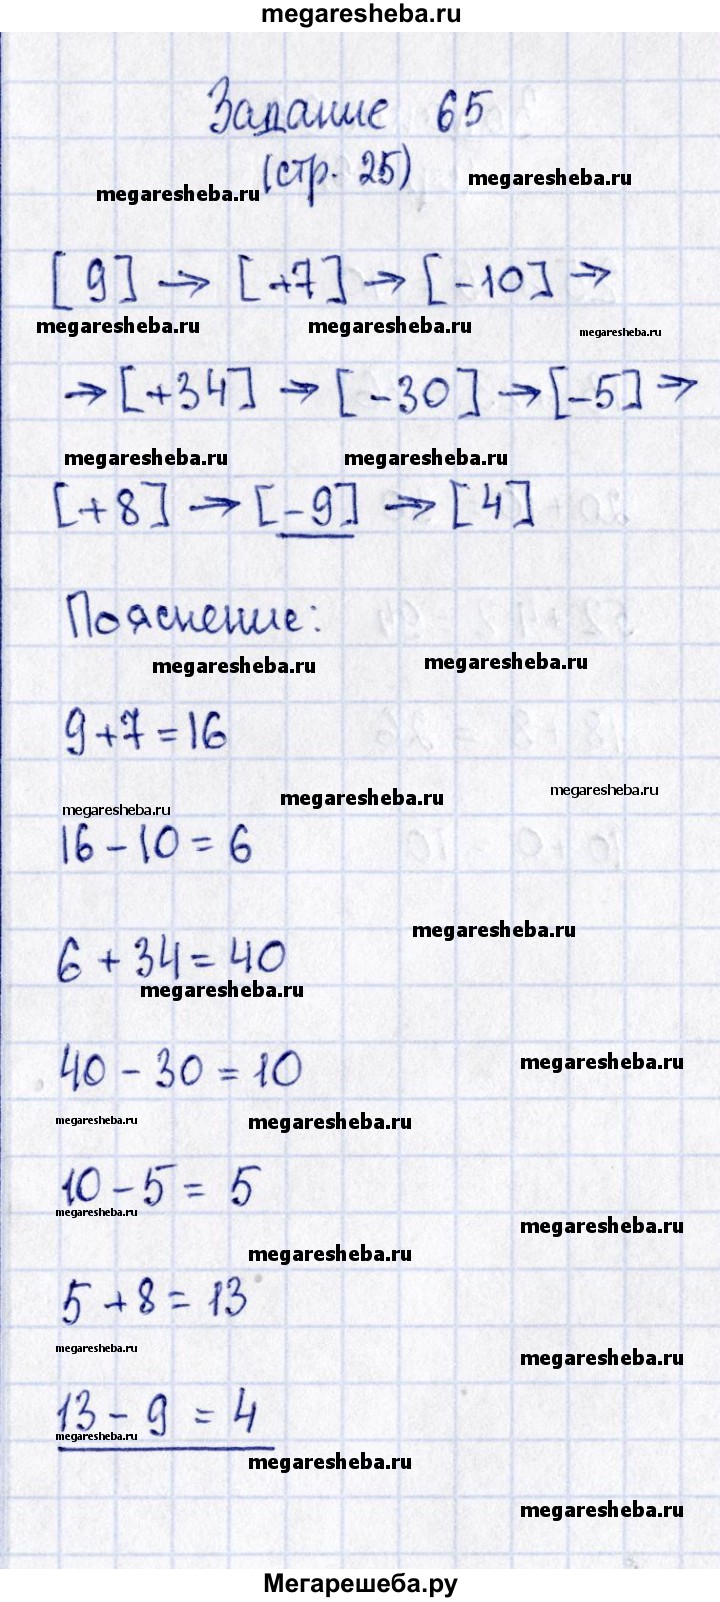 megaresheba.ru
Задание 65
(стр. 25)
megaresheba.ru megaresheba.ru
[9] → [+7] → [-10] →
megaresheba.ru megaresheba.ru megaresheba.ru
→ [+34] → [-30] → [-5] →
megaresheba.ru megaresheba.ru
[+8] → [-9] → [4]
Пояснение:
megaresheba.ru megaresheba.ru
9+7=16
megaresheba.ru megaresheba.ru megaresheba.ru
16-10=6
megaresheba.ru
6+34=40
megaresheba.ru
40-30=10
megaresheba.ru
megaresheba.ru megaresheba.ru
10-5=5
megaresheba.ru megaresheba.ru
megaresheba.ru
5+8=13
megaresheba.ru megaresheba.ru
13-9=4
megaresheba.ru
megaresheba.ru
megaresheba.ru
Мегарешеба.ру